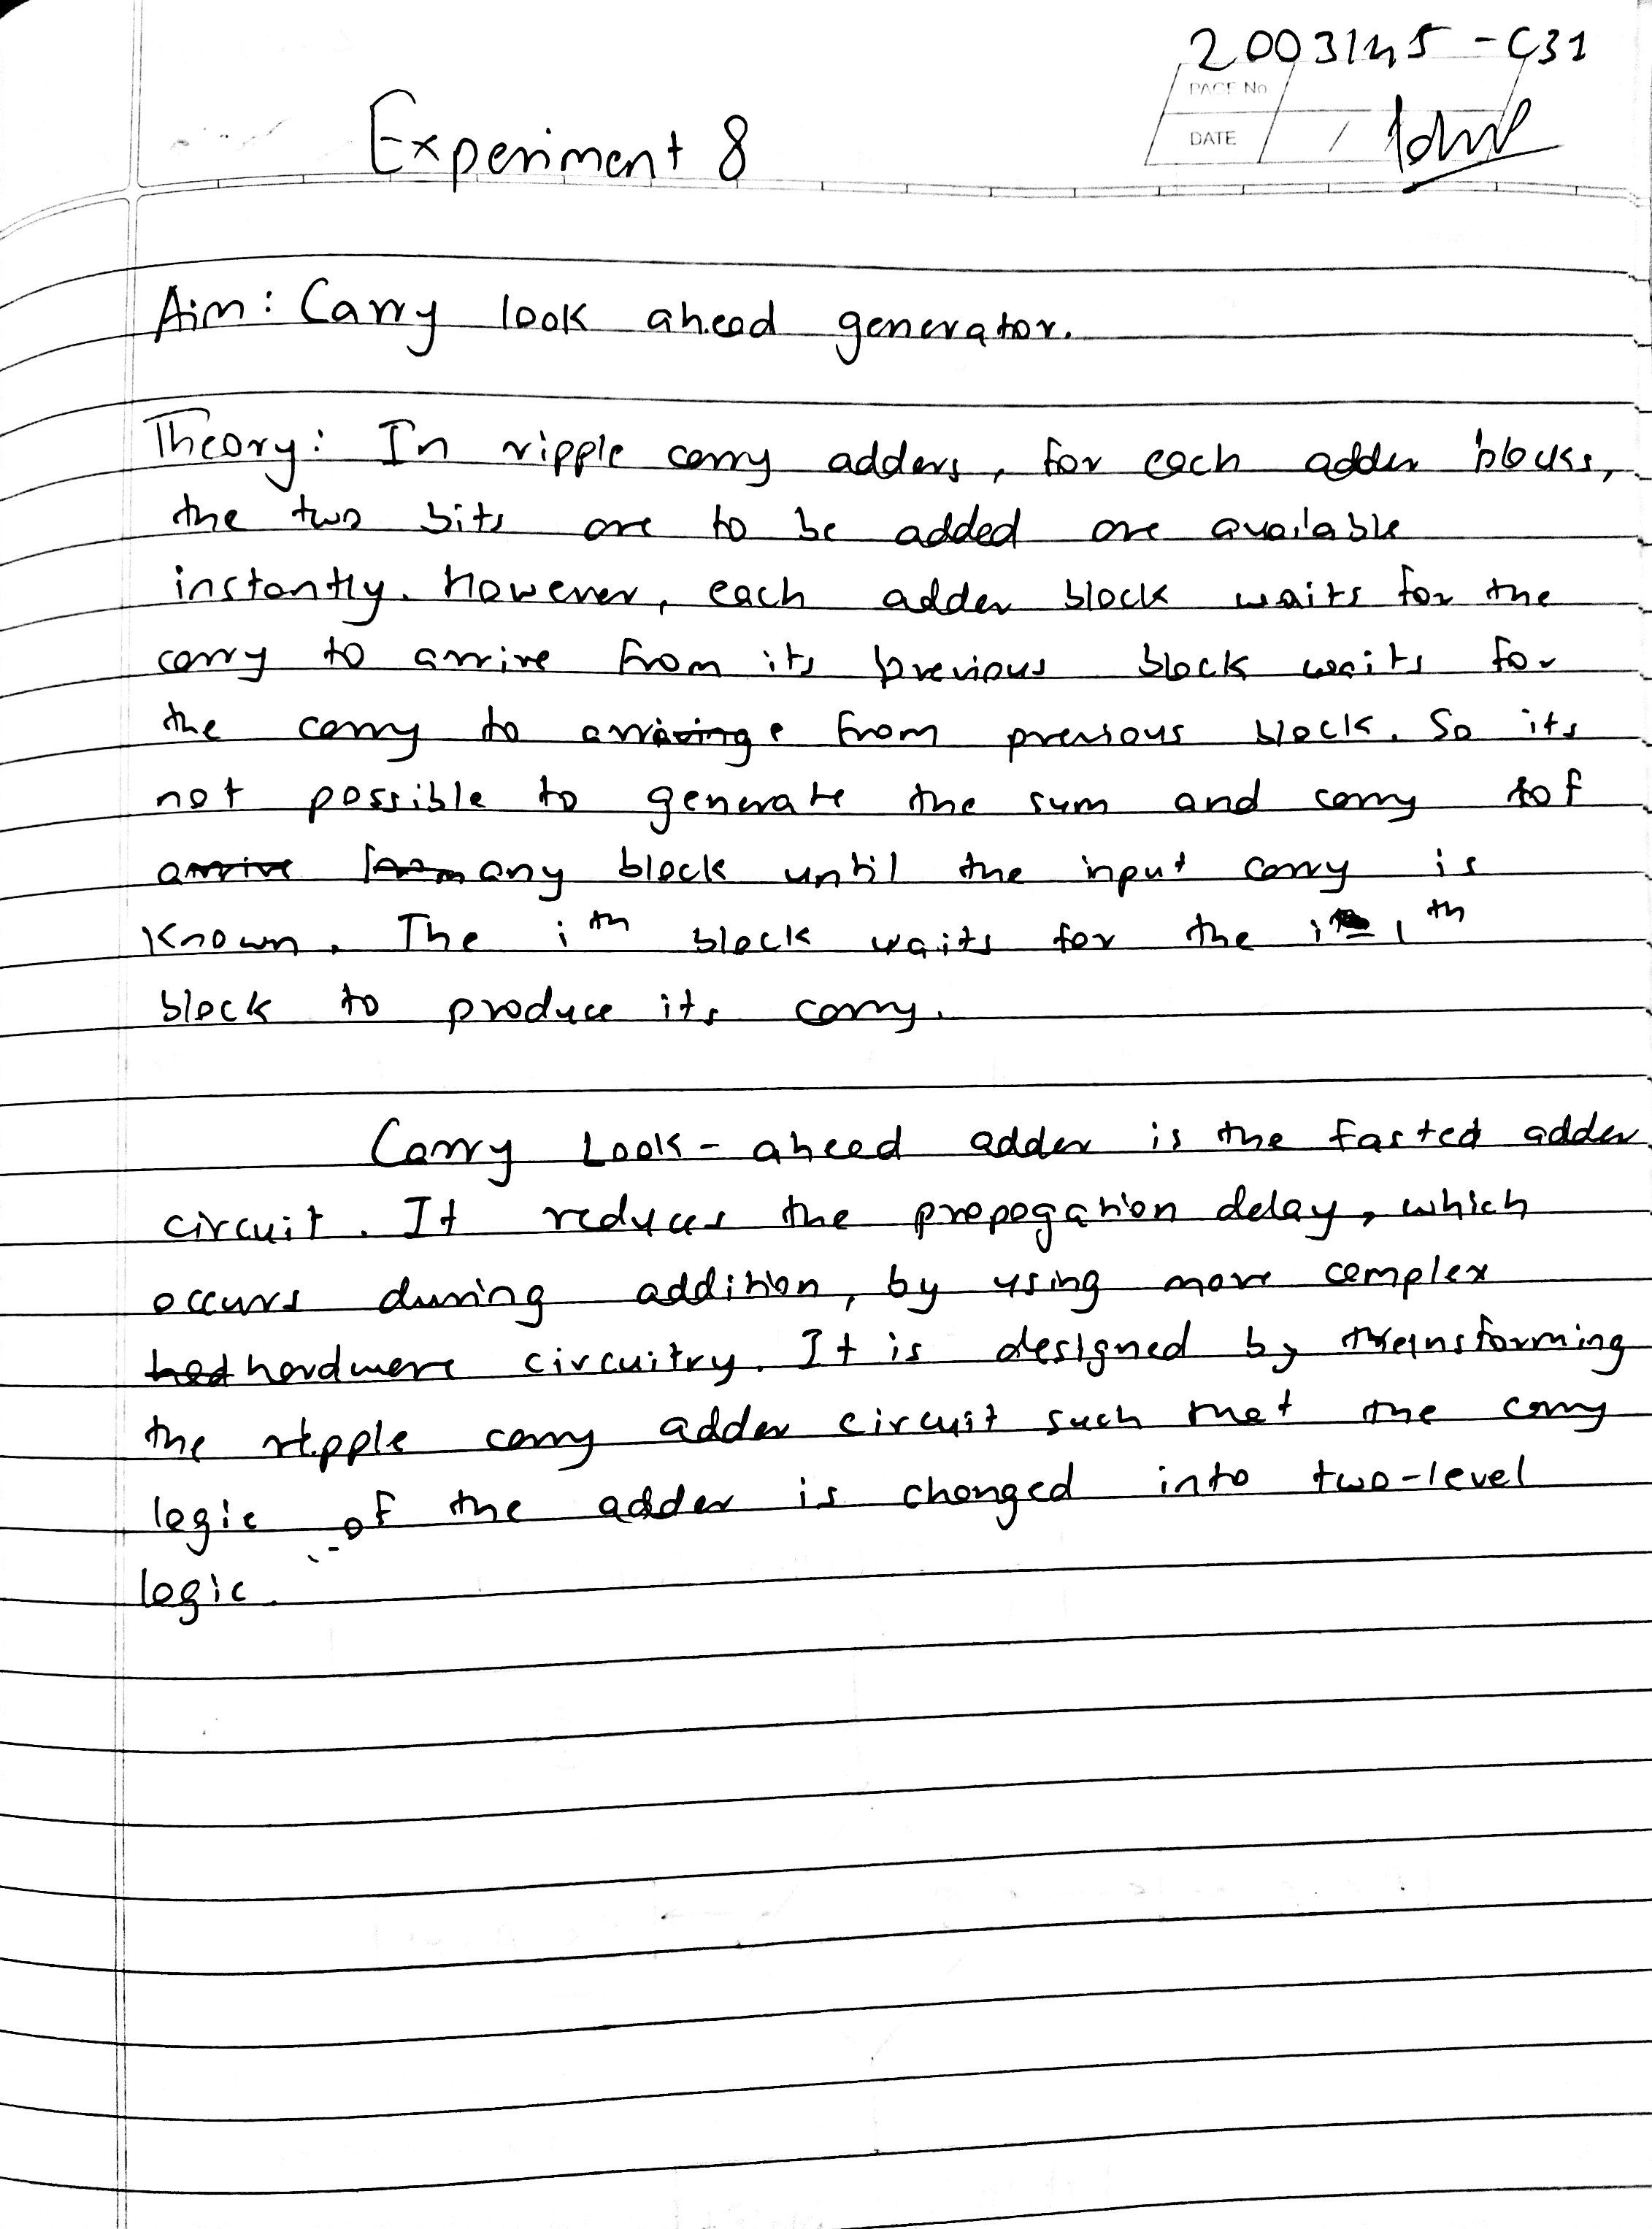 2003145 - C31
PAGE No
DATE /
Experiment 8
Aim: Carry look ahead generator.
Theory: In ripple carry adders, for each adder blocks,
the two bits are to be added are available
instantly. However, each adder block waits for the
carry to arrive from its previous block waits for
the carry to arrive from previous block. So its
not possible to generate the sum and carry of
any block until the input carry is
known. The i th block waits for the i - 1 th
block to produce its carry.
Carry Look-ahead adder is the fasted adder
circuit. It reduces the propogation delay, which
occurs during addition, by using more complex
hardware circuitry. It is designed by transforming
the ripple carry adder circuit such that the carry
logic of the adder is changed into two-level
logic.